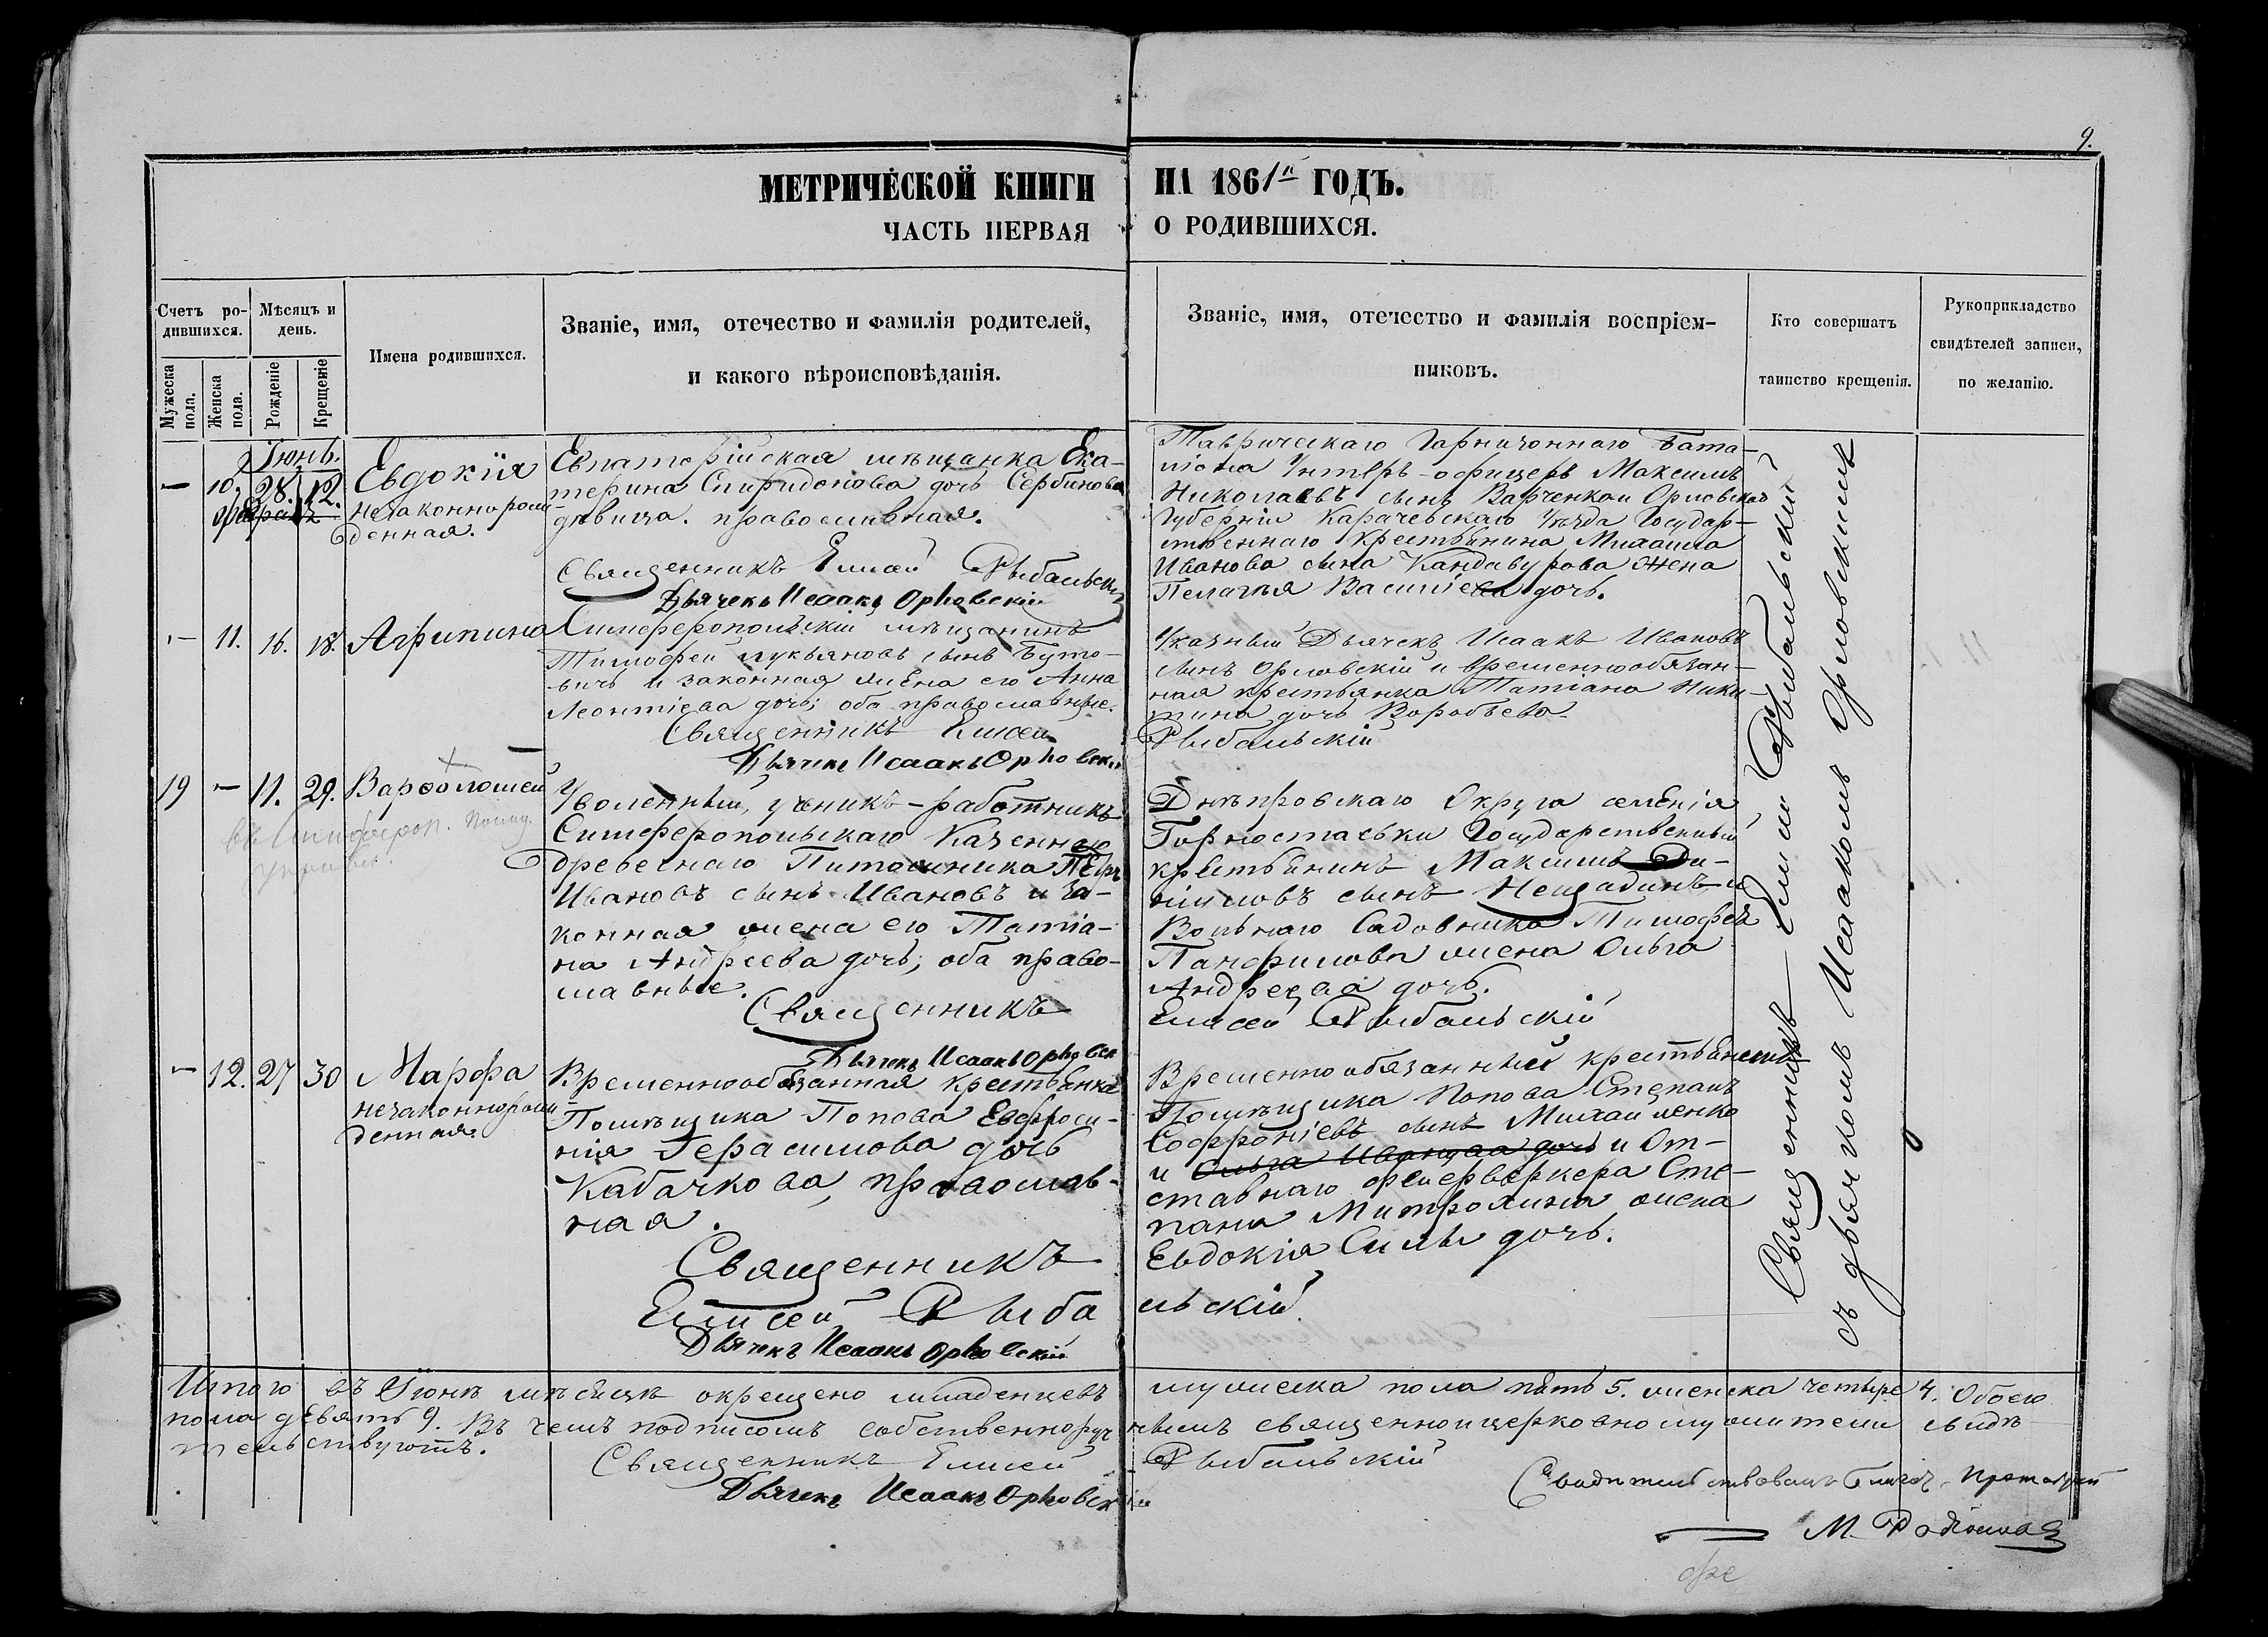 9.
МЕТРИЧЕСКОЙ КНИГИ НА 1861й ГОДЪ.
ЧАСТЬ ПЕРВАЯ О РОДИВШИХСЯ.
Счетъ ро-
дившихся.
Мужеска пола.
Женска пола.
Мѣсяцъ и
день.
Рожденіе
Крещеніе
Имена родившихся.
Званіе, имя, отечество и фамилія родителей,
и какого вѣроисповѣданія.
Званіе, имя, отечество и фамилія воспріем-
никовъ.
Кто совершатъ
таинство крещенія.
Рукоприкладство
свидѣтелей записи,
по желанію.
Іюнь.
— 10. 28. 12.
февраль
Евдокія
незаконнорож-
денная.
Евпаторійская мѣщанка Ека-
терина Спиридонова дочь Сербинова
дѣвица. православная.
Священникъ Елисей Рыбальскій
Дьячекъ Исаакъ Орловскій
Таврическаго Гарнизоннаго Бата-
ліона Унтеръ-офицеръ Максимъ
Николаевъ сынъ Варченкои Орловской
Губерніи Карачевскаго Уѣзда Государ-
ственнаго Крестьянина Михаила
Иванова сына Кандавурова жена
Пелагѣя Василіева дочь.
— 11. 16. 18. Агрипина
Симферопольскій мѣщанинъ
Тимофей Лукьяновъ сынъ Буто-
вичъ и законная жена его Анна
Леонтіева дочь; оба православные.
Священникъ Елисей
Дьячекъ Исаакъ Орловскій
Указный Дьячекъ Исаакъ Ивановъ
сынъ Орловскій и временнообязан-
ная крестьянка Татіана Ники-
тина дочь Воробьева
Рыбальскій
19 — 11. 29. Варфоломей
Уволенный, ученикъ-работникъ
Симферопольскаго Казеннаго
древеснаго Питомника Петръ
Ивановъ сынъ Ивановъ и за-
конная жена его Татіа-
на Андреева дочь; оба право-
славные.
Священникъ
Дьячекъ Исаакъ Орловск
Днѣпровскаго Округа селенія
Горностаевки Государственный
крестьянинъ Максимъ Да-
ніиловъ сынъ Нещадинъ и
Вольнаго Садовника Тимофея
Панфилова жена Ольга
Андреева дочь.
Елисей Рыбальскій
— 12. 27 30 Марфа
незаконнорож-
денная.
Временнообязанная крестьянка
Помѣщика Попова Евфроси-
нія Герасимова дочь
Кабачкова, православ-
ная.
Священникъ
Елисей Рыба
Дьячекъ Исаакъ Орловскій
Временно обязанный крестьянинъ
Помѣщика Попова Степанъ
Софроніевъ сынъ Михайленко
и Ольга Иванова дочь и От-
ставнаго фейерверкера Сте-
пана Митрохина жена
Евдокія Силы дочь.
льскій
Священникъ Елисей Рыбальскій
съ дьячкомъ Исаакомъ Орловскимъ
Итого въ Іюнѣ мѣсяцѣ окрещено младенцевъ мужеска пола пять 5. женска четыре 4. Обоего
пола девять 9. Въ чемъ подписомъ собственноруч нымъ священноицерковнослужители свидѣ-
тельствуютъ.
Священникъ Елисей Рыбальскій
Дьячекъ Исаакъ Орловскій
Свидѣтельствовалъ Благоч. Протоіерей
М. Родіоновъ